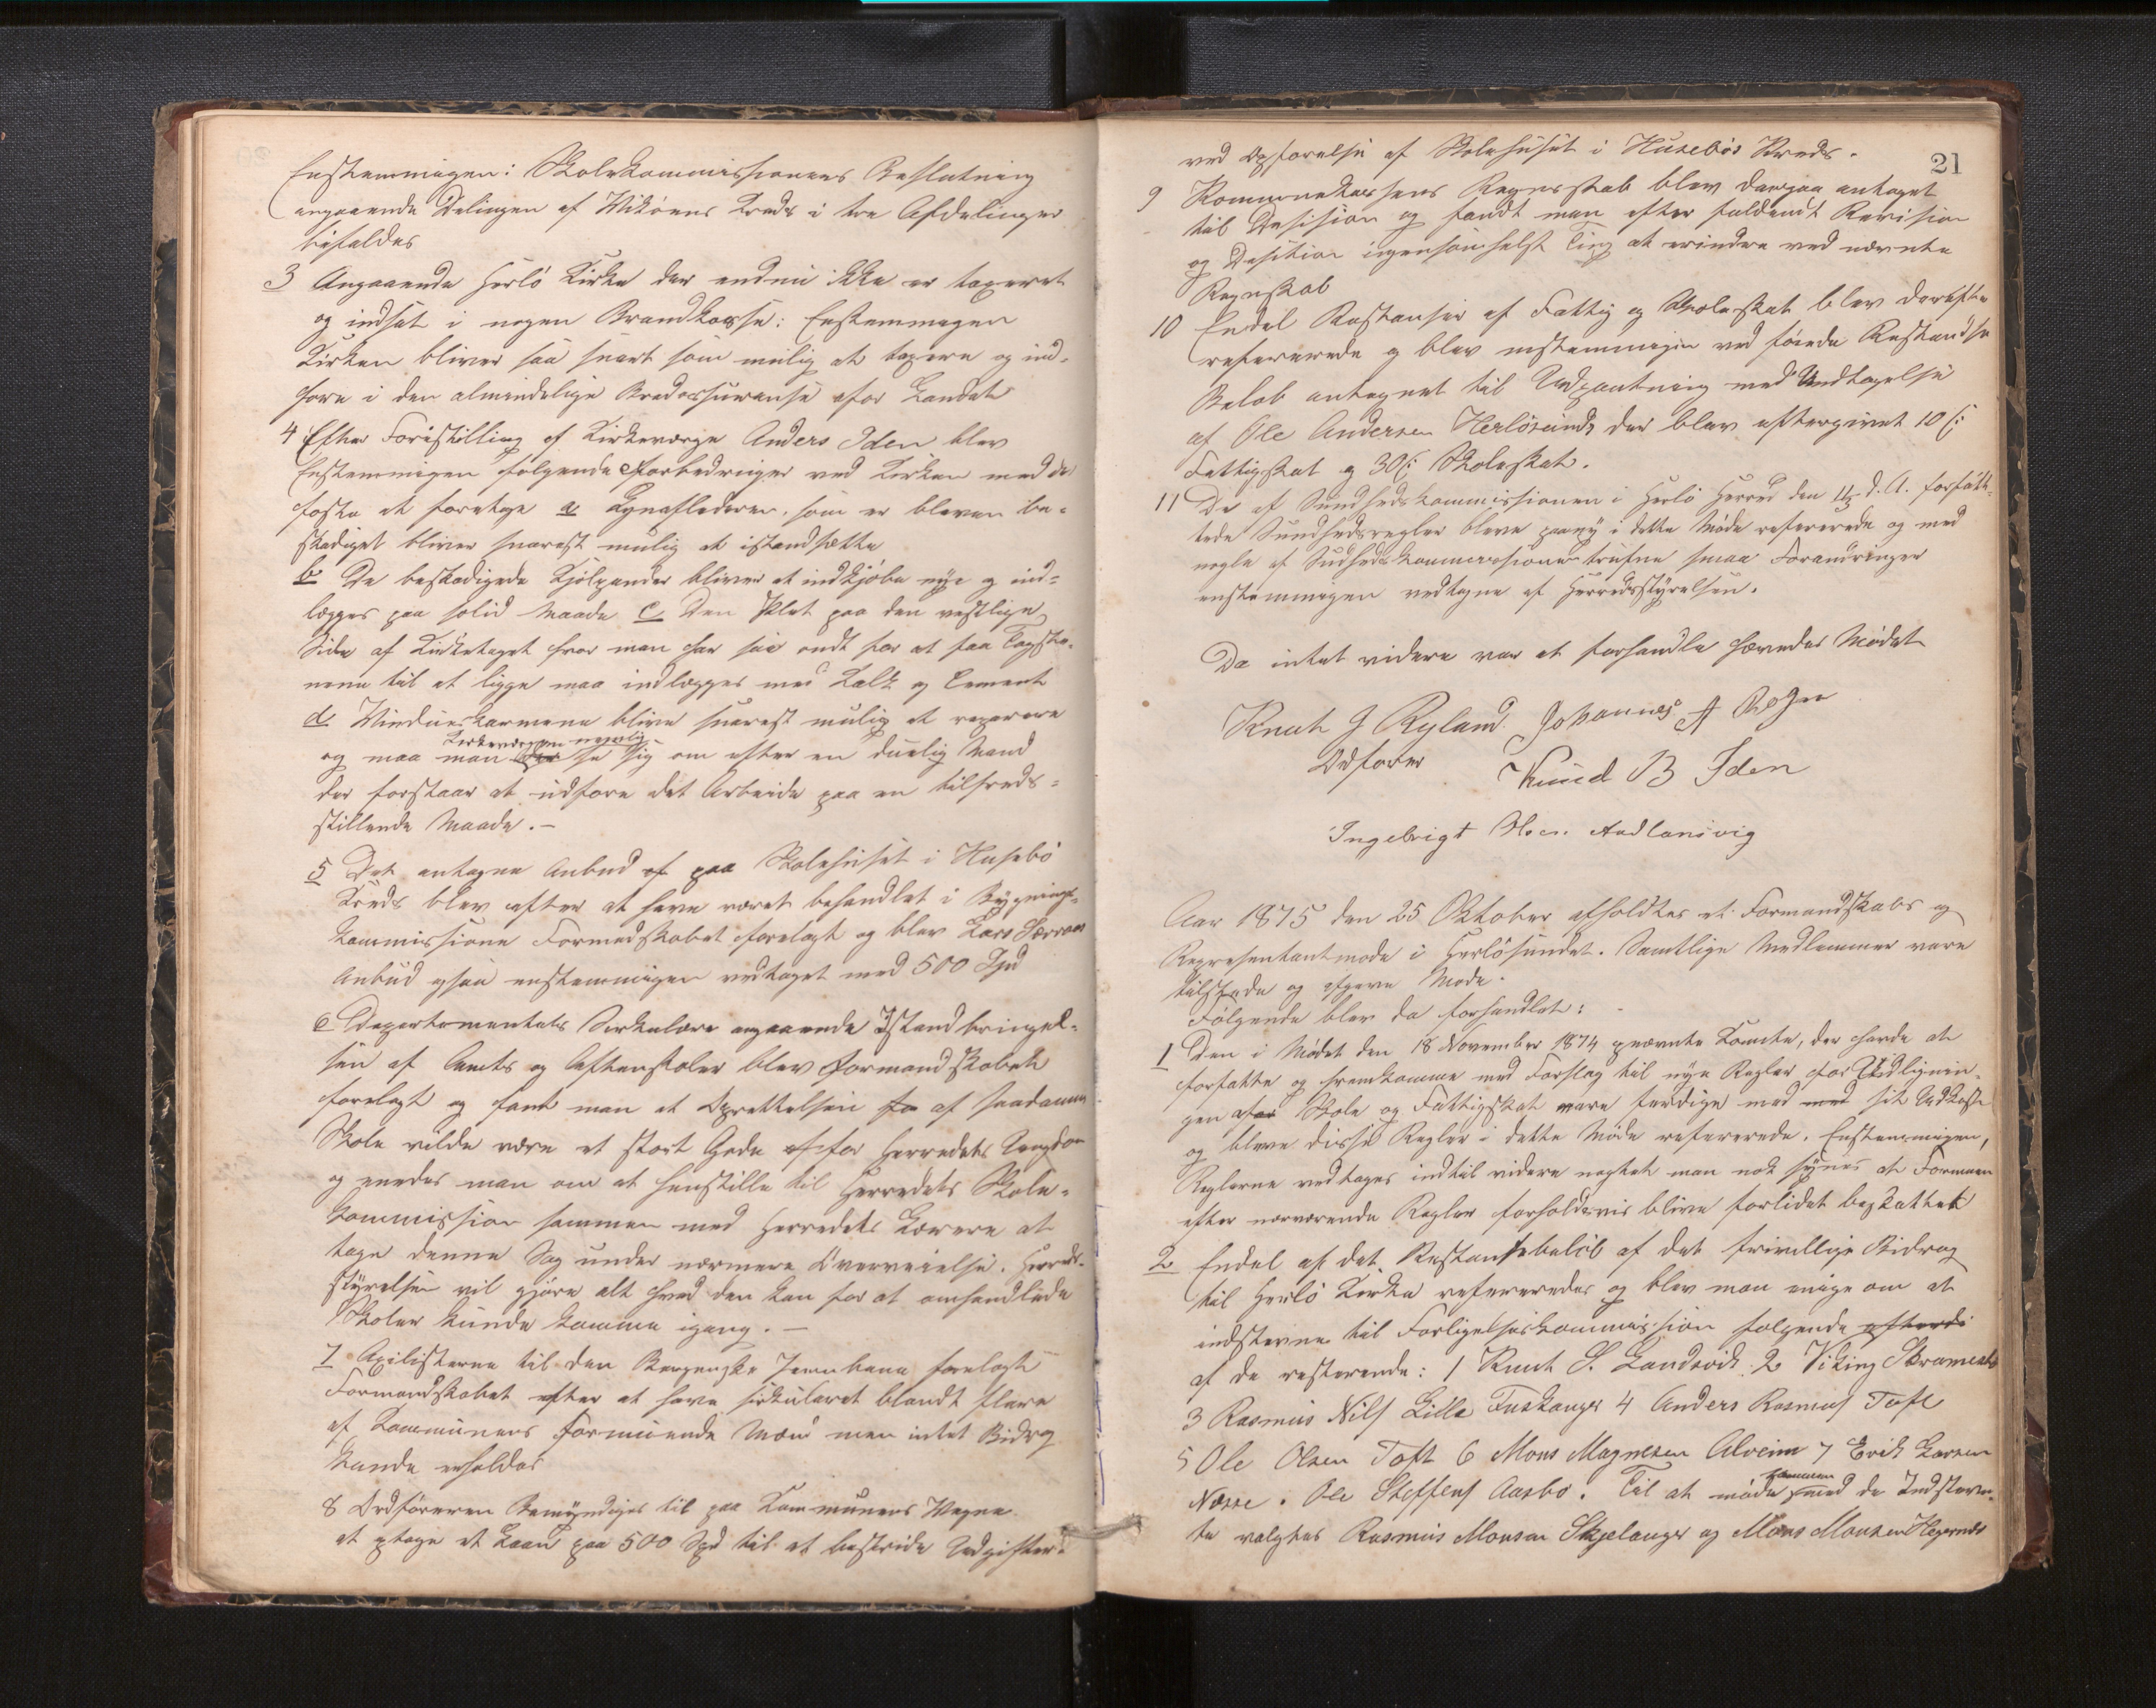 Enstemmigen: Skolekommissionens Beslutning
angaaende Delingen af Wikøens Kreds i tre Afdelinger
bifaldes
3 Angaaende Herlö Kirke der endnu ikke er taxeret
og indsat i nogen Brandkasse: Enstemmigen
Kirken bliver saa snart som mulig at taxere og ind-
føre i den almindelige Brandassuranse for Landet
4 Efter Forestilling af Kirkeværge Anders Iden blev
Enstemmigen følgende Forbedringer ved Kirken med det
første at foretage a Lynaflederen, som er bleven be-
skadiget bliver snarest mulig at istandsætte
b De beskadigede Kjølpander bliver at indkjøbe nye og ind-
lægges paa solid Maade c Den Plet paa den vestlige
Side af Kirketaget hvor man har saa ondt for at faa Tagste-
nene til at ligge maa indlægges med Kalk og Cement
d Vindueskarmene blive snarest mulig at reparere
Kirkeværgen nøielig
og maa man se sig om efter en duelig Mand
der forstaar at udføre det Arbeide paa en tilfreds-
stillende Maade. –
5 Det antagne Anbud af paa Skolehuset i Husebö
Kreds blev efter at have været behandlet i Bygnings-
kommissione Formandskabet forelagt og blev Lars
Anbud ogsaa enstemmigen vedtaget med 500 Spd
6 Departementets Cirkulære angaaende Istandbringel-
sen af Amts og Aftenskoler blev Formandskabet
forelagt og fant man at Oprettelsen fo af saadanne
Skole vilde være et stort Gode for Herredets Ungdom
og enedes man om at henstille til Herredets Skole-
kommission sammen med Herredets Lærere at
tage denne Sag under nærmere Overveielse. Herreds-
styrelsen vil gjøre alt hvad den kan for at omhandlede
Skoler kunde komme igang. –
7 Axilisterne til den Bergenske Jernbane forelagt
Formandskabet efter at have sirkuleret blandt flere
af Kommunens formuende Mænd men intet Bidrag
kunde erholdes
8 Ordføreren Bemyndiges til paa Kommunens Vegne
at optage et Laan paa 500 Spd til at bestride Udgifter-
21
ved Opførelse af Skolehuset i Husebös Kreds.
9 Kommunekassens Regnskab blev derpaa antaget
til Desision og fandt man efter fuldendt Revision
og Desition ingensomhelst Ting at erindre ved nævnte
Regnskab
10 Endel Restanser af Fattig og Skoleskat blev derefter
refererede og blev enstemmigen ved føiede Restandse
Beløb antegnet til Udpantning med Undtagelse
af Ole Andersen Herlösund der blev eftergivet 10 ß
Fattigskat og 30 ß Skoleskat.
11 De af Sundhedskommissionen i Herlö Herred den d. A. forfat-
tede Sundhedsregler bleve paany i dette Møde refererede og med
nogle af Sudhedskommissionen trufne smaa Forandringer
enstemmigen vedtagne af Herredsstyrelsen.
Da intet videre var at forhandle hævedes Mødet
Knut J Ryland Johannes A
Ordfører Knud B Iden
Ingebrigt
Aar 1875 den 25 Oktober afholdtes et Formandskabs og
Representantmøde i Herlösundet. Samtlige Medlemmer vare
tilstede og afgave Møde.
Følgende blev da forhandlet:
1 Den i Mødet den 18 November 1874 nævnte Komite, der havde at
forfatte og fremkomme med Forslag til nye Regler for Udlignin-
gen af Skole og Fattigskat vare ferdige med med sit Udkast
og bleve disse Regler i dette Møde refererede. Enstemmigen,
Reglerne vedtages indtil videre uagtet man nok synes at Formuen
efter nærværende Regler forholdsvis blive forlidet beskattet
2 Endel af det Restansebeløb af det frivillige Bidrag
til Herlö Kirke refereredes og blev man enige om at
indstevne til Forligelseskommission følgende efterdi
af de resterende: 1 Knut S. Landsvik 2 Viking
3 Rasmus Nils Lille Fuskanger 4 Anders Rasmus Toft
5 Ole Olsen Toft 6 Mons Magnesen Alveim 7 Erik Larsen
sammen
Næsse. Ole Steffens Aasbö. Til at møde med de Indstevn-
te valgtes Rasmus Monsen Skjelanger og Mons Monsen